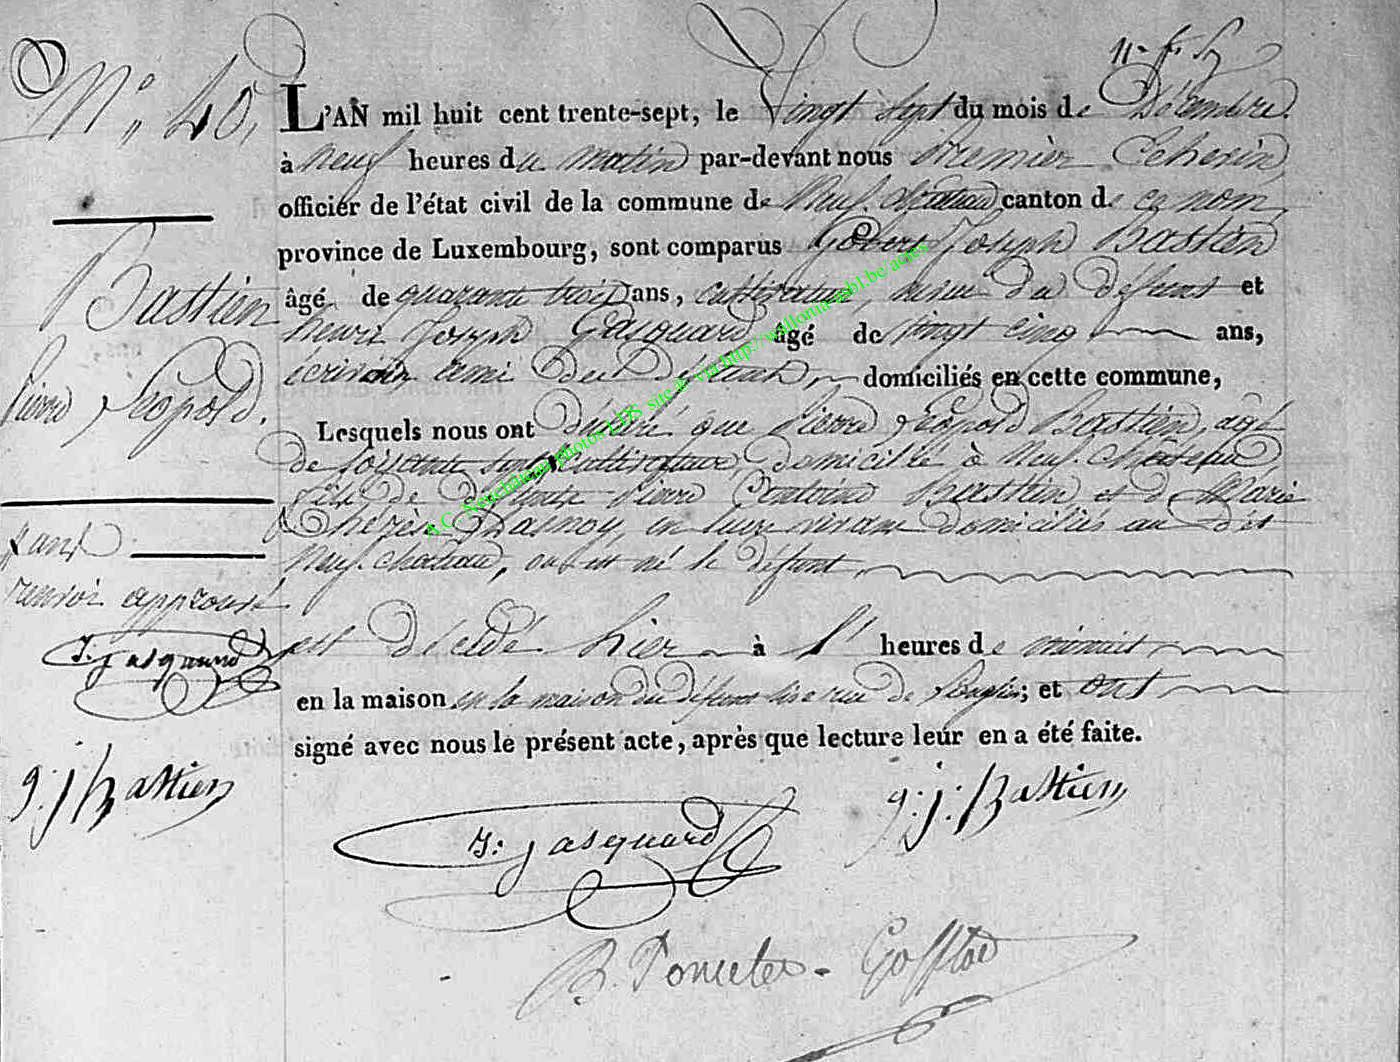 N° 40,
L'AN mil huit cent trente-sept, le Vingt sept du mois de Décembre
à neuf heures du matin par-devant nous Premier Echevin
officier de l'état civil de la commune de Neufchateau canton de ce nom
province de Luxembourg, sont comparus Gobert Joseph Bastien
âgé de quarante trois ans, cultivateur, neveu du défunt et
henri Joseph Gasquard âgé de vingt cinq ans,
écrivain ami du défunt domiciliés en cette commune,
Lesquels nous ont déclaré que Pierre Léopold Bastien, agé
de soixante sept cultivateur domicilié à Neufchateau
fils de Pierre Bastien et de Marie
Thérèse en leur vivant domiciliés au dit
Neufchateau, où est né le défunt
est décédé hier à heures de minuit
en la maison en la maison du défunt sise rue de ; et ont
signé avec nous le présent acte, après que lecture leur en a été faite.
Bastien
Pierre Léopold.
renvoi approuvé
J. Gasquard
g. j Bastien
J. Gasquard
g. j. Bastien
B. Poncelet - Goffton
A.C. Neufchateau photos LDS site & via http://wallonia-asbl.be/actes